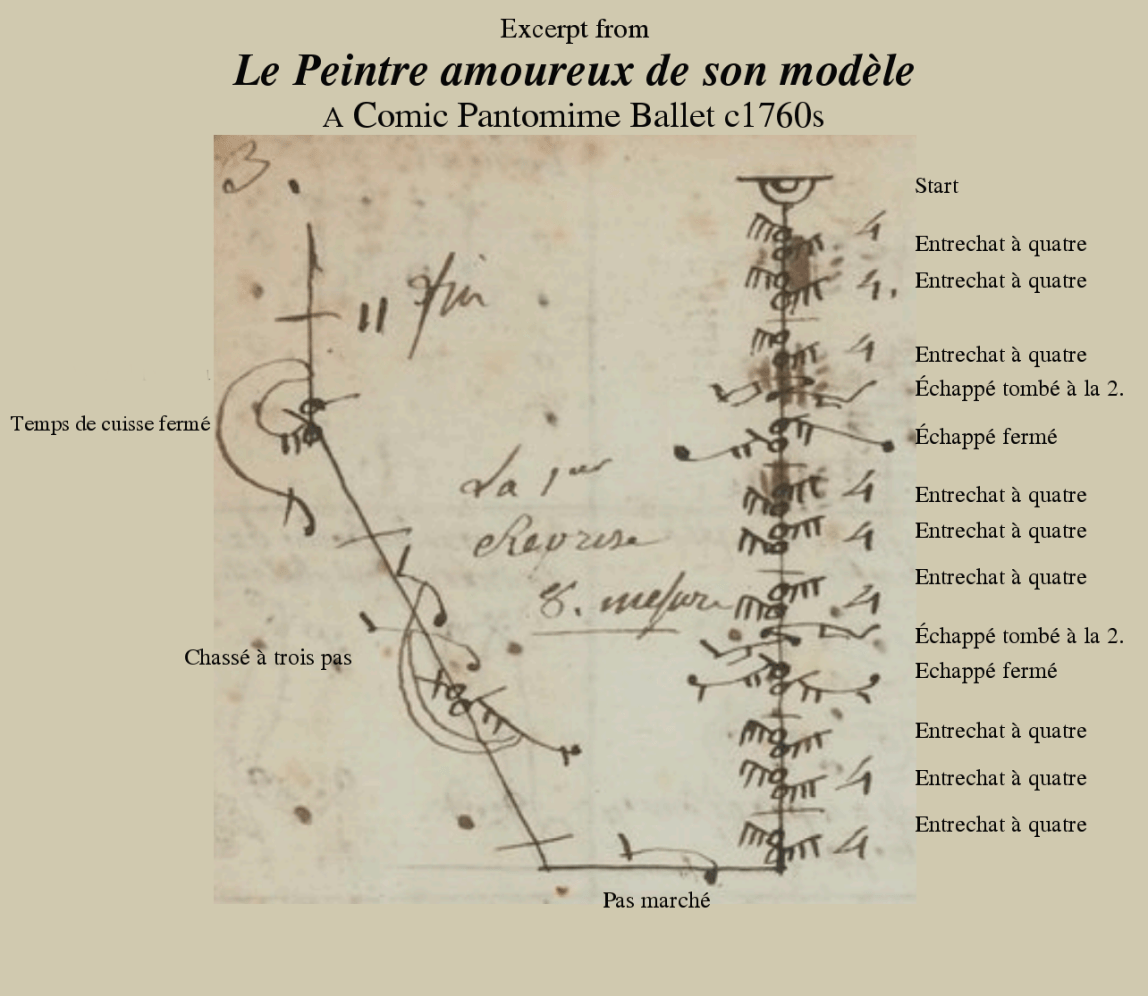 Excerpt from
Le Peintre amoureux de son modèle
A Comic Pantomime Ballet c1760s
3.
Start
4
Entrechat à quatre
4.
Entrechat à quatre
fin
4
Entrechat à quatre
Échappé tombé à la 2.
Temps de cuisse fermé
Échappé fermé
La 1
4
Entrechat à quatre
4
Entrechat à quatre
Reprise
Entrechat à quatre
8. mesure
4
Échappé tombé à la 2.
Chassé à trois pas
Echappé fermé
Entrechat à quatre
4
Entrechat à quatre
4
Entrechat à quatre
Pas marché